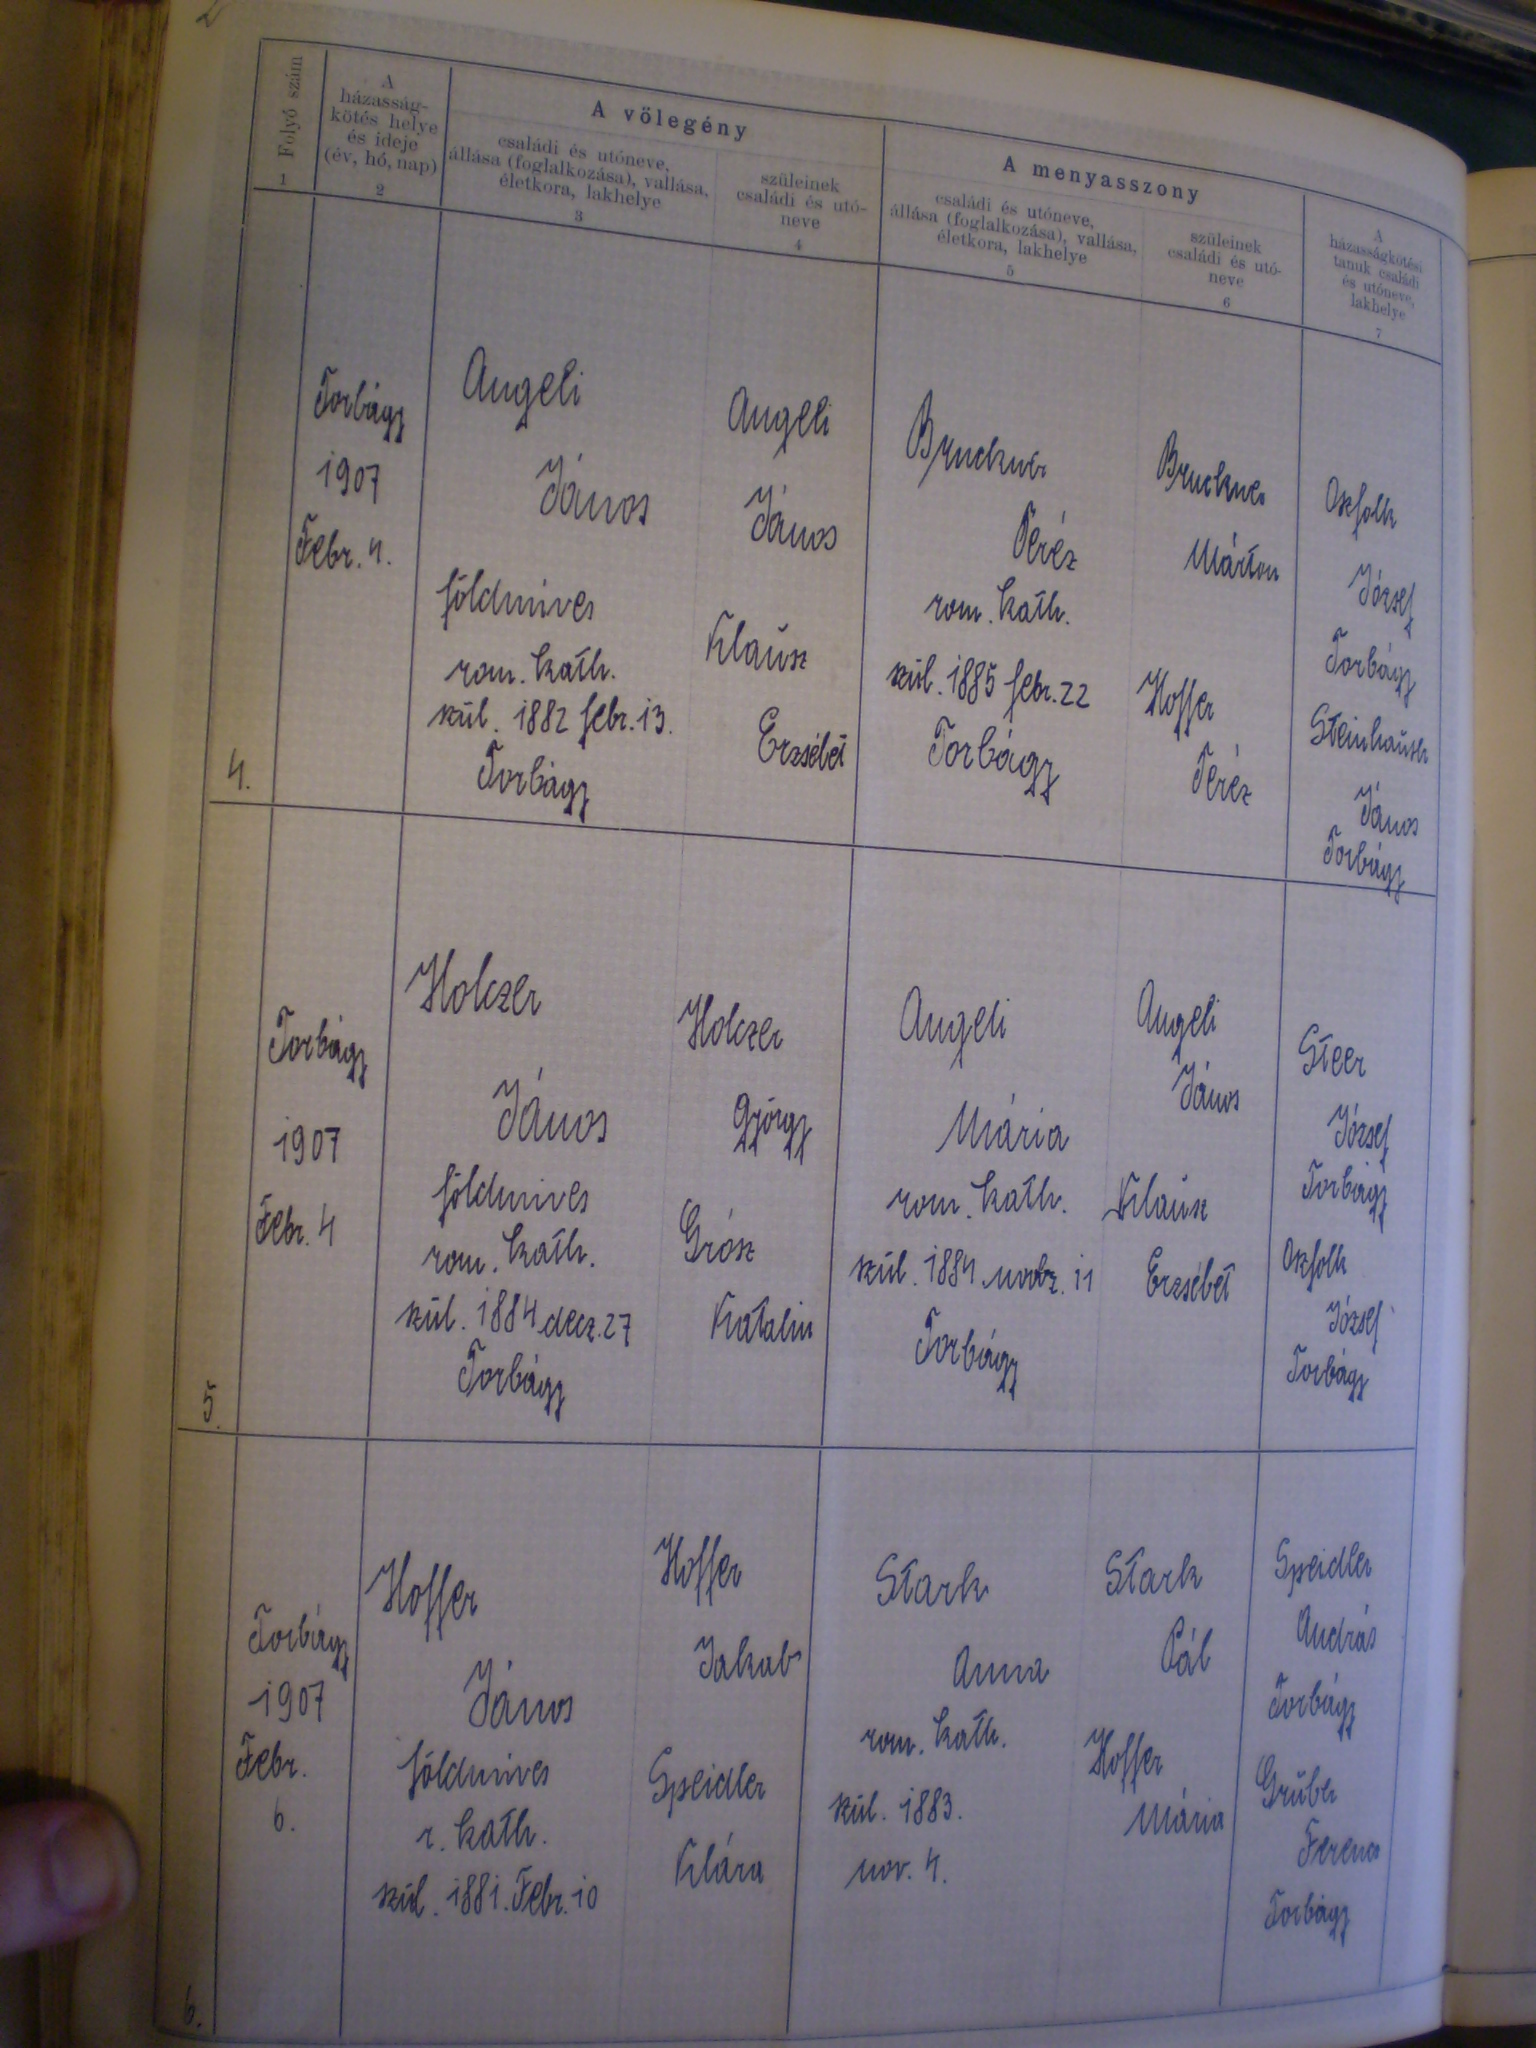 Folyó szám
1
A
házasság-
kötés helye
és ideje
(év, hó, nap)
2
A völegény
családi és utóneve,
állása (foglalkozása), vallása,
életkora, lakhelye
3
szüleinek
családi és utó-
neve
4
A menyasszony
családi és utóneve,
állása (foglalkozása), vallása,
életkora, lakhelye
5
szüleinek
családi és utó-
neve
6
A
házasságkötési
tanuk családi
és utóneve,
lakhelye
7
4.
Torbágy
1907
Febr. 4.
Angeli
János
földmives
rom. kath.
szül. 1882 febr. 13.
Torbágy
Angeli
János
Klausz
Erzsébet
Bruckner
Teréz
rom. kath.
szül. 1885 febr. 22
Torbágy
Bruckner
Márton
Hoffer
Teréz
Oxfolk
József
Torbágy
János
Torbágy
5.
Torbágy
1907
Febr. 4
Holczer
János
földmives
rom. kath.
szül. 1884 decz. 27
Torbágy
Holczer
György
Grósz
Katalin
Angeli
Mária
rom. kath.
szül. 1884 novbr. 11
Torbágy
Angeli
János
Klausz
Erzsébet
Steer
József
Torbágy
Oxfolk
József
Torbágy
6.
Torbágy
1907
Febr.
6.
Hoffer
János
földmives
r. kath.
szül. 1881. Febr. 10
Hoffer
Jakab
Speidler
Klára
Stark
Anna
rom. kath.
szül. 1883.
nov. 4.
Stark
Pál
Hoffer
Mária
Speidler
András
Torbágy
Gruber
Ferencz
Torbágy